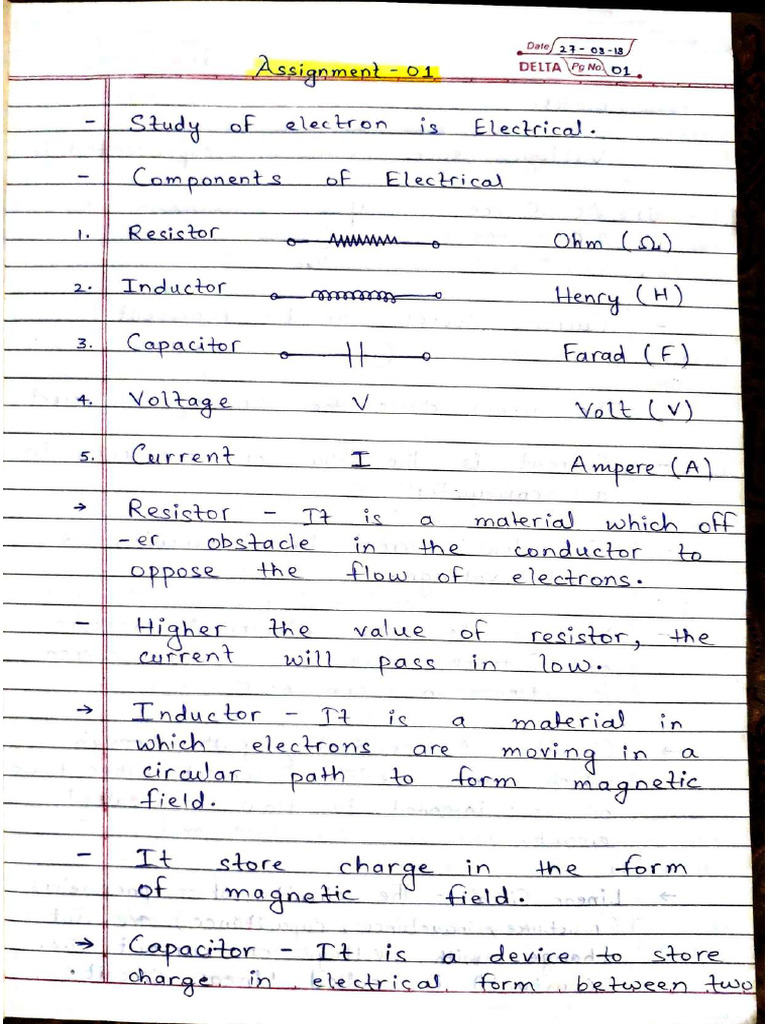 Date 27-03-18
Assignment - 01
DELTA Pg No. 01
- Study of electron is Electrical.
- Components of Electrical
1. Resistor Ohm (Ω)
2. Inductor Henry (H)
3. Capacitor Farad (F)
4. Voltage V Volt (V)
5. Current I Ampere (A)
→ Resistor - It is a material which off
-er obstacle in the conductor to
oppose the flow of electrons.
- Higher the value of resistor, the
current will pass in low.
→ Inductor - It is a material in
which electrons are moving in a
circular path to form magnetic
field.
- It store charge in the form
of magnetic field.
→ Capacitor - It is a device to store
charge in electrical form between two